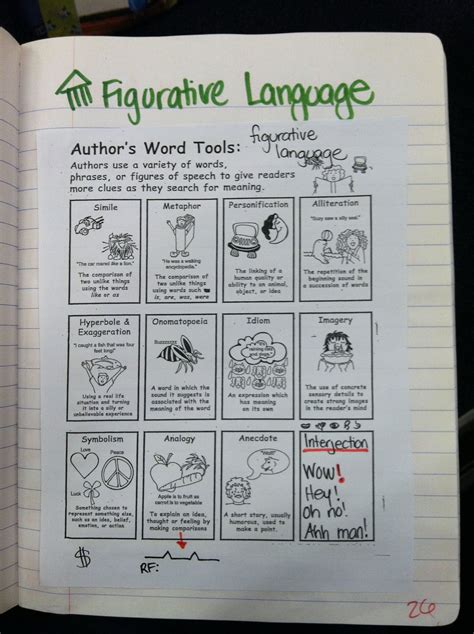 Figurative Language
Author's Word Tools:
figurative
language
Authors use a variety of words,
phrases, or figures of speech to give readers
more clues as they search for meaning.
Simile
"The car roared like a lion."
The comparison of
two unlike things
using the words
like or as
Metaphor
"He was a walking
encyclopedia."
The comparison of
two unlike things
using words such
is, are, was, were
Personification
The linking of a
human quality or
ability to an animal,
object, or idea
Alliteration
"Suzy saw a silly seal."
The repetition of the
beginning sound in
a succession of words
Hyperbole &
Exaggeration
"I caught a fish that was four
feet long!"
Using a real life
situation and turning
it into a silly or
unbelievable event
Onomatopoeia
A word in which the
sound it suggests is
associated with the
meaning of the word
Idiom
An expression which
has meaning
on its own
Imagery
The use of concrete
sensory details to
create strong images
in the reader's mind
Symbolism
Love
Peace
Luck
Something chosen to
represent something else,
such as an idea, belief,
emotion, or action
Analogy
Apple is to fruit as
carrot is to vegetable
To explain an idea,
thought or feeling by
making comparisons
Anecdote
A short story, usually
humorous, used to
make a point.
Interjection
Wow!
Hey!
Oh no!
Ahh man!
$
RF:
26